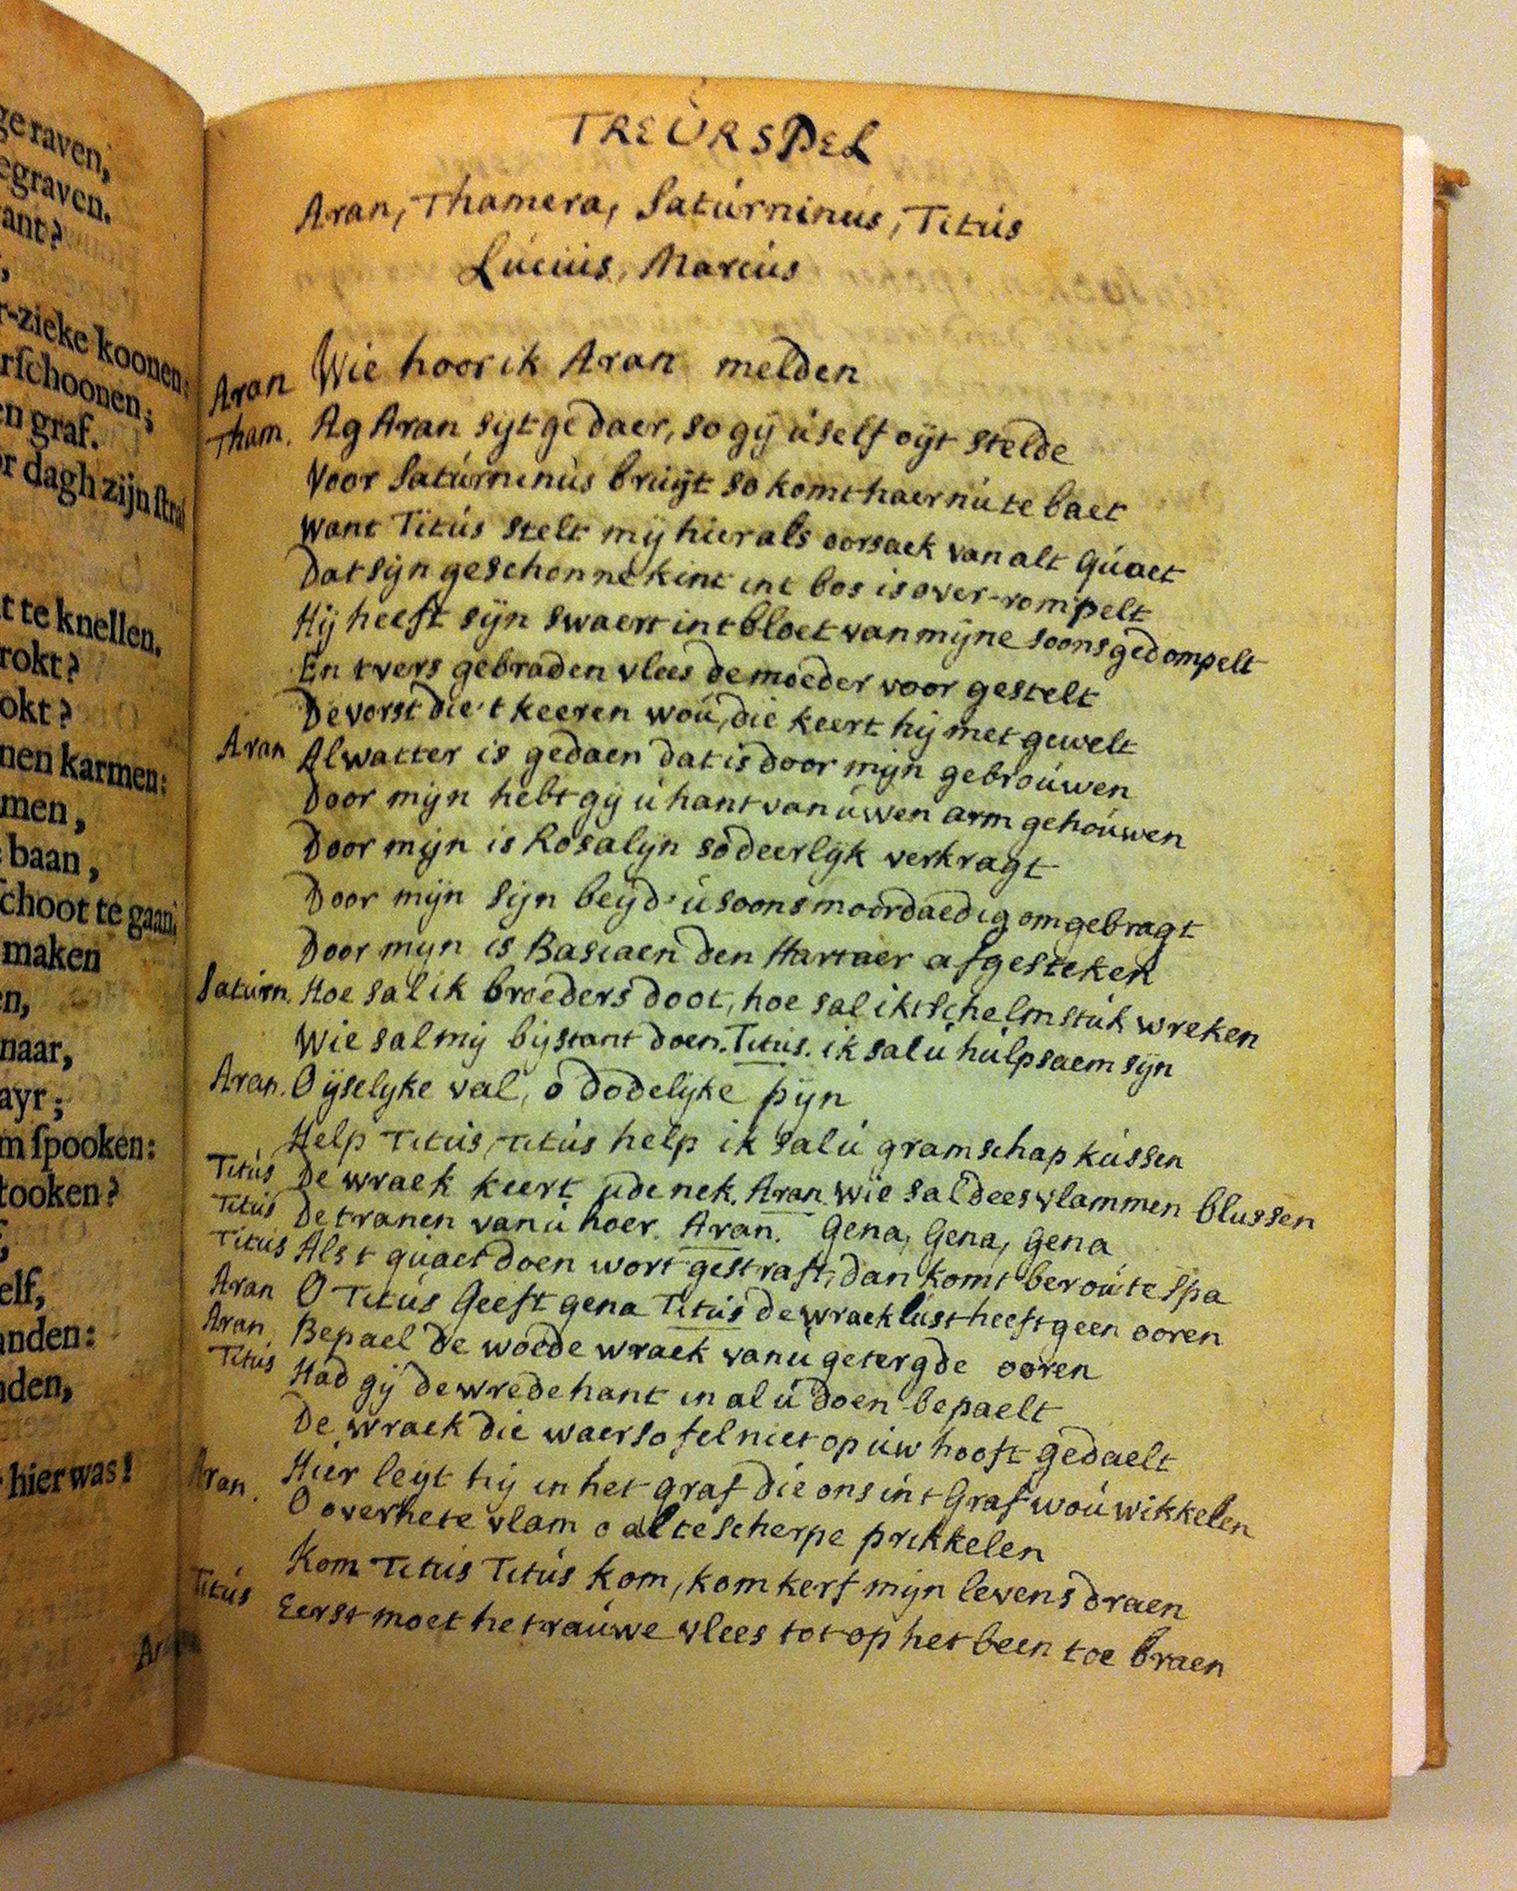 ge raven,
egraven.
ant?
r-zieke koonen:
rſchoonen;
en graf.
r dagh zijn ſtraf
t te knellen.
rokt?
okt?
nen karmen:
men,
baan,
ſchoot te gaan;
maken
en,
naar,
ayr;
m ſpooken:
tooken?
elf,
anden:
nden,
hier was!
TREÚRSPEL
Aran, Thamera, Satúrninús, Titús
Lúciús, Marcús
Aran Wie hoor ik Aran melden
Tham. Ag Aran sijt ge daer, so gij úself oijt stelde
Voor Satúrninús brúijt so komt haer nú te baet
Want Titús stelt mij hier als oorsaek van alt Qúaet
Dat sijn geschonne kint int bos is over-rompelt
Hij heeft sijn swaert int bloet van mijne soons gedompelt
En t vers gebraden vlees de moeder voor gestelt
De vorst die 't keeren woú, die keert hij met gewelt
Aran Al watter is gedaen dat is door mijn gebroúwen
Door mijn hebt gij ú hant van úwen arm gehoúwen
Door mijn is Rosalijn so deerlijk verkragt
Door mijn sijn beijd' ú soons moordaedig omgebragt
Door mijn is Basiaen den Hartaer afgesteken
Satúrn. Hoe sal ik broeders doot, hoe sal ik t schelmstúk wreken
Wie sal mij bijstant doen. Titús. ik sal ú húlpsaem sijn
Aran. O ijselijke val, o dodelijke pijn
Help Titús, Titús help ik sal ú gramschap kússen
Titús De wraek keert ú de nek. Aran wie sal dees vlammen blussen
Titús De tranen van ú hoer. Aran. Gena, Gena, Gena
Titús Als t qúaet doen wort gestraft, dan komt beroú te spa
Aran O Titús Geeft gena Titús de wraeklúst heeft geen ooren
Aran. Bepael de woede wraek van ú getergde ooren
Titús Had gij de wrede hant in al ú doen bepaelt
De wraek die waer so fel niet op úw hooft gedaelt
Hier leijt hij in het graf die ons int Graf woú wikkelen
Aran. O overhete vlam o al te scherpe prikkelen
Kom Titús Titús kom, kom kerf mijn levens draen
Titús Eerst moet het raúwe vlees tot op het been toe braen